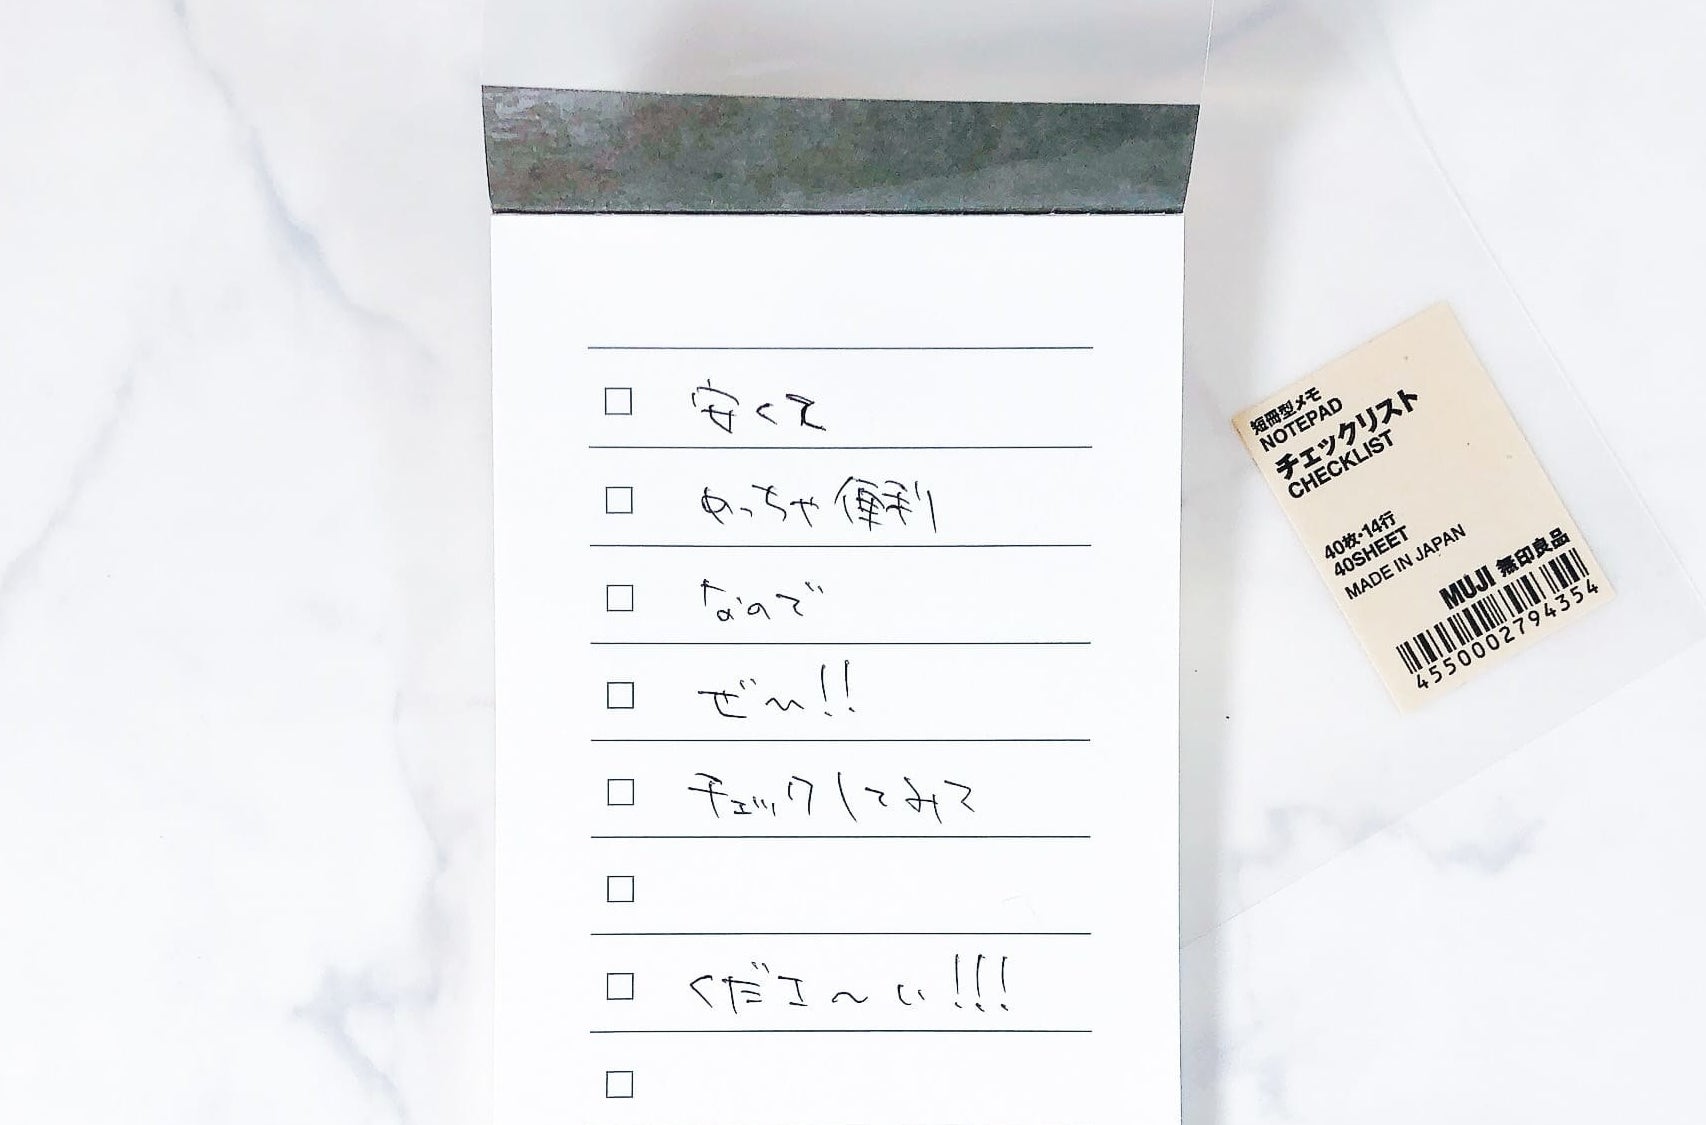 安くて
めっちゃ便利
なので
ぜひ!!
チェックしてみて
くださ〜い!!!
短冊型メモ
NOTEPAD
チェックリスト
CHECKLIST
40枚・14行
40SHEET
MADE IN JAPAN
MUJI 無印良品
4550002794354